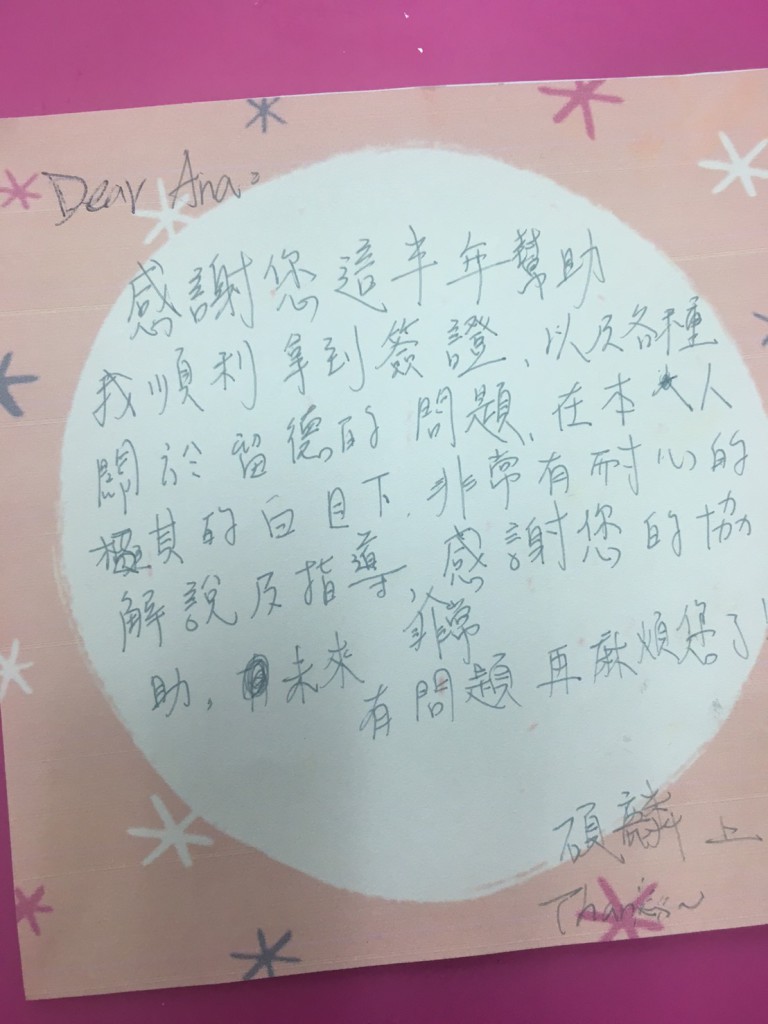 Dear Ana:
感謝您這半年幫助
我順利拿到簽證,以及各種
關於留德的問題,在本人
極其的白目下,非常有耐心的
解說及指導,非常感謝您的協
助,未來有問題再麻煩您了!
碩麟 上
Thanks~